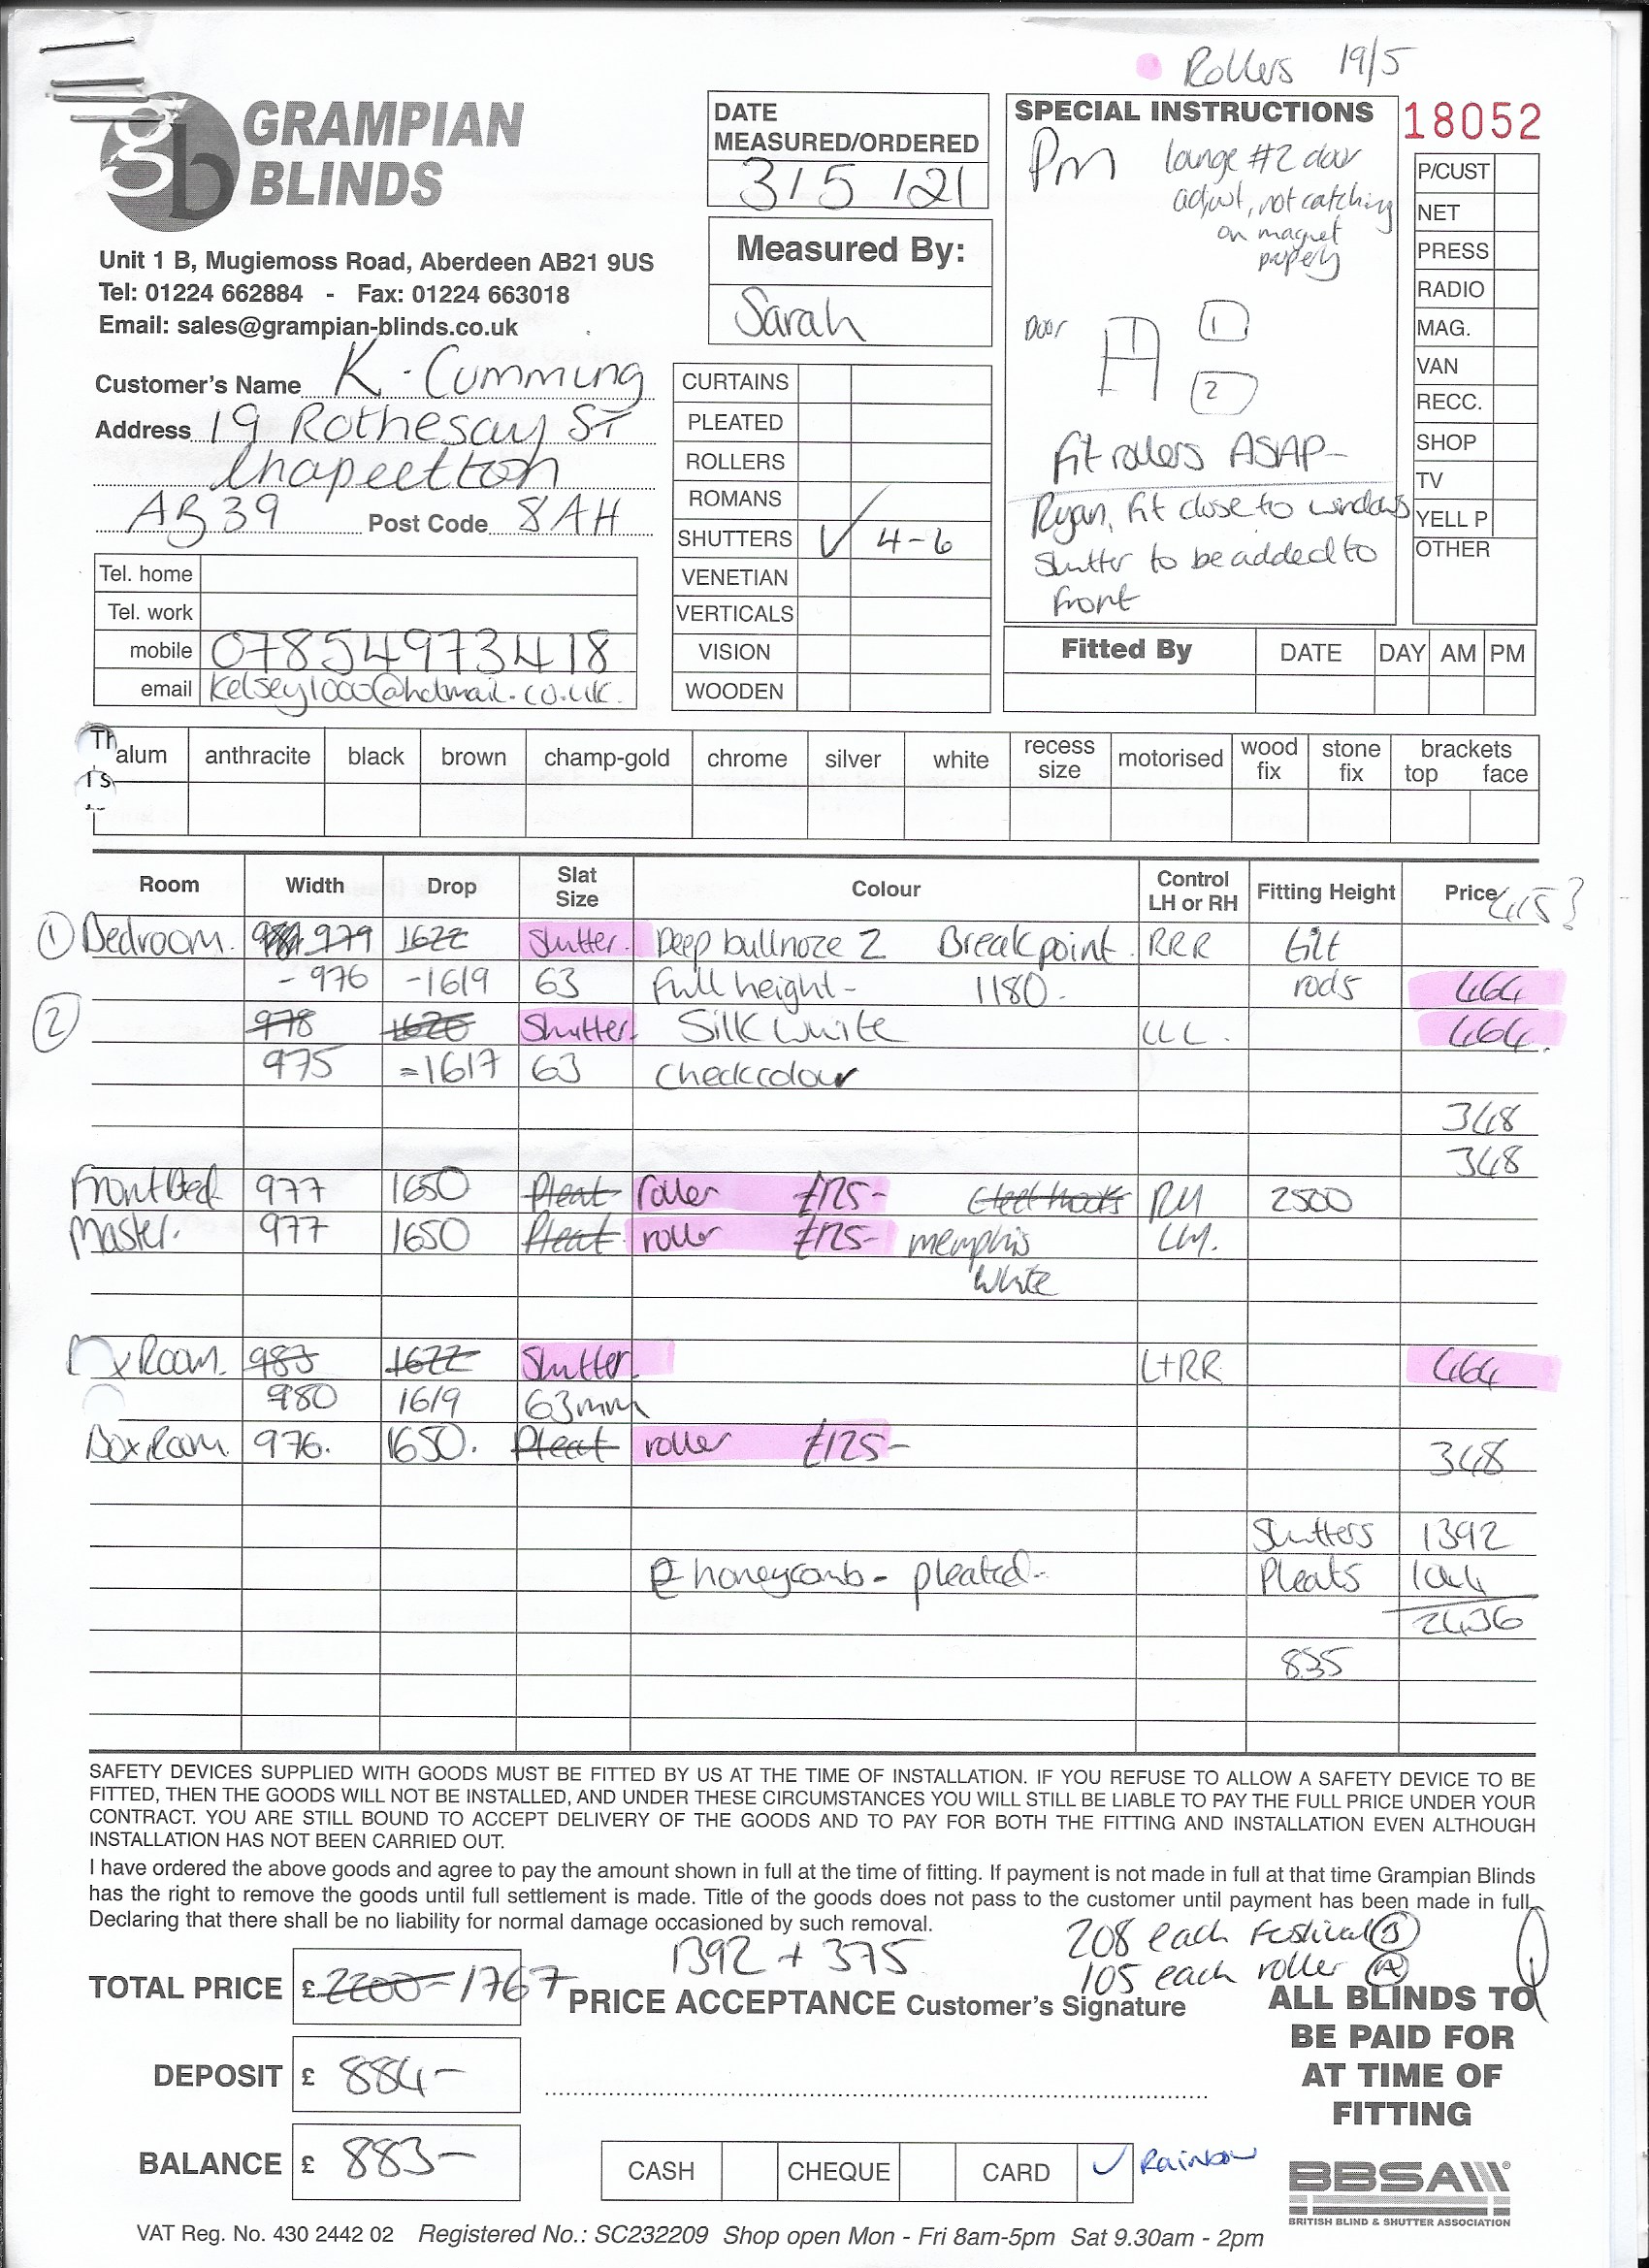 Rollers 19/5
GRAMPIAN
BLINDS
gb
Unit 1 B, Mugiemoss Road, Aberdeen AB21 9US
Tel: 01224 662884 - Fax: 01224 663018
Email: sales@grampian-blinds.co.uk
Customer's Name K. Cumming
Address 19 Rothesay St
Chapeltton
AB39 Post Code 8AH
Tel. home
Tel. work
mobile 07854973418
email Kelsey1000@hotmail.co.uk.
DATE
MEASURED/ORDERED
3/5/21
Measured By:
Sarah
CURTAINS
PLEATED
ROLLERS
ROMANS
SHUTTERS ✓ 4-6
VENETIAN
VERTICALS
VISION
WOODEN
SPECIAL INSTRUCTIONS
Pm lounge #2 door
adjust, not catching
on magnet
properly
Door 1
2
Fit rollers ASAP-
Ryan, fit close to windows
Shutter to be added to
front
18052
P/CUST
NET
PRESS
RADIO
MAG.
VAN
RECC.
SHOP
TV
YELL P
OTHER
Fitted By DATE DAY AM PM
Th
is
alum anthracite black brown champ-gold chrome silver white recess size motorised wood fix stone fix brackets top face
Room Width Drop Slat Size Colour Control LH or RH Fitting Height Price 415?
① Bedroom. 979 1622 Shutter. Deep bullnoze Z Breakpoint RRR tilt
- 976 -1619 63 Full height- 1180. rods 464
② 978 1620 Shutter. Silk white LLL. 464.
975 =1617 63 Check colour
348
348
Front Bed 977 1650 Pleat roller £125- RH 2500
Master. 977 1650 Pleat roller £125- memphis LH.
white
x Room. 983 1622 Shutter. L+RR 464
980 1619 63mm
Box Room. 976. 1650. Pleat roller £125- 348
Shutters 1392
honeycomb - pleated- Pleats 1044
2436
835
SAFETY DEVICES SUPPLIED WITH GOODS MUST BE FITTED BY US AT THE TIME OF INSTALLATION. IF YOU REFUSE TO ALLOW A SAFETY DEVICE TO BE
FITTED, THEN THE GOODS WILL NOT BE INSTALLED, AND UNDER THESE CIRCUMSTANCES YOU WILL STILL BE LIABLE TO PAY THE FULL PRICE UNDER YOUR
CONTRACT. YOU ARE STILL BOUND TO ACCEPT DELIVERY OF THE GOODS AND TO PAY FOR BOTH THE FITTING AND INSTALLATION EVEN ALTHOUGH
INSTALLATION HAS NOT BEEN CARRIED OUT.
I have ordered the above goods and agree to pay the amount shown in full at the time of fitting. If payment is not made in full at that time Grampian Blinds
has the right to remove the goods until full settlement is made. Title of the goods does not pass to the customer until payment has been made in full.
Declaring that there shall be no liability for normal damage occasioned by such removal.
1392 + 375
208 each Festival Ⓑ
105 each roller Ⓐ
TOTAL PRICE £ 2200- 1767
PRICE ACCEPTANCE Customer's Signature
DEPOSIT £ 884-
BALANCE £ 883-
CASH CHEQUE CARD ✓ Rainbow
ALL BLINDS TO
BE PAID FOR
AT TIME OF
FITTING
BBSA
BRITISH BLIND & SHUTTER ASSOCIATION
VAT Reg. No. 430 2442 02 Registered No.: SC232209 Shop open Mon - Fri 8am-5pm Sat 9.30am - 2pm